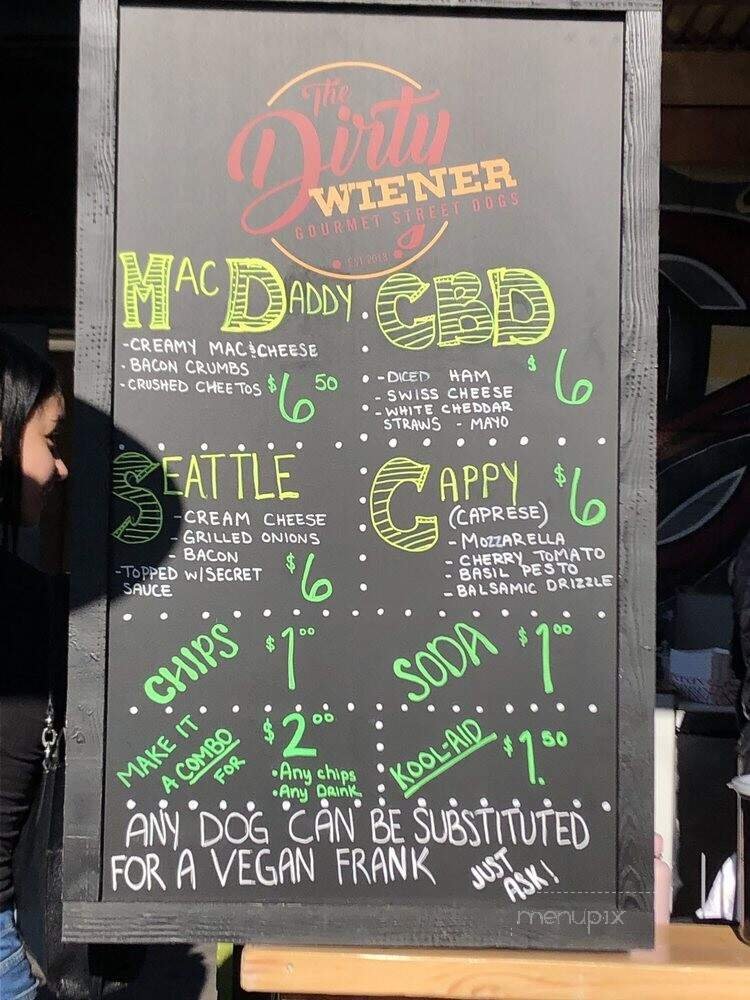 The
Dirty
WIENER
GOURMET STREET DOGS
EST. 2018
MAC DADDY
-CREAMY MAC & CHEESE
- BACON CRUMBS
- CRUSHED CHEETOS $6 50
CBD
$6
- DICED HAM
- SWISS CHEESE
- WHITE CHEDDAR
STRAWS - MAYO
SEATTLE
- CREAM CHEESE
- GRILLED ONIONS
- BACON
-TOPPED W/SECRET
SAUCE
$6
CAPPY
(CAPRESE)
$6
- MOZZARELLA
- CHERRY TOMATO
- BASIL PESTO
- BALSAMIC DRIZZLE
CHIPS $1 00
SODA $1 00
MAKE IT
A COMBO
FOR
$2 00
•Any chips
•Any Drink
KOOL-AID $1.50
ANY DOG CAN BE SUBSTITUTED
FOR A VEGAN FRANK
JUST
ASK!
menupix